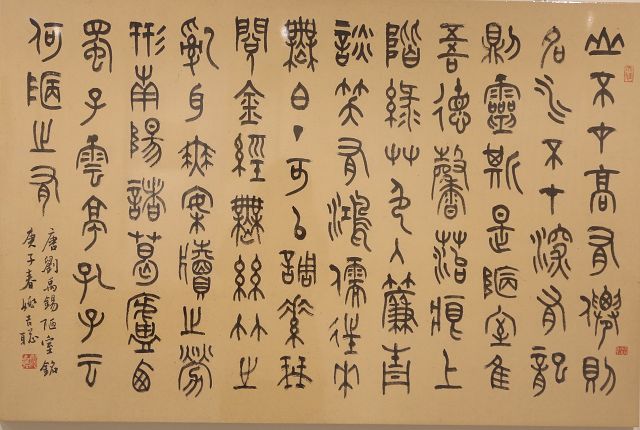 山不在高有僊則
名水不在深有龍
則靈斯是陋室隹
吾德馨苔痕上
階綠艸色入簾青
談笑有鴻儒往來
無白丁可以調素琴
閱金經無絲竹之
亂耳無案牘之勞
形南陽諸葛廬西
蜀子雲亭孔子云
何陋之有
唐劉禹錫陋室銘
庚子春姚吉聰